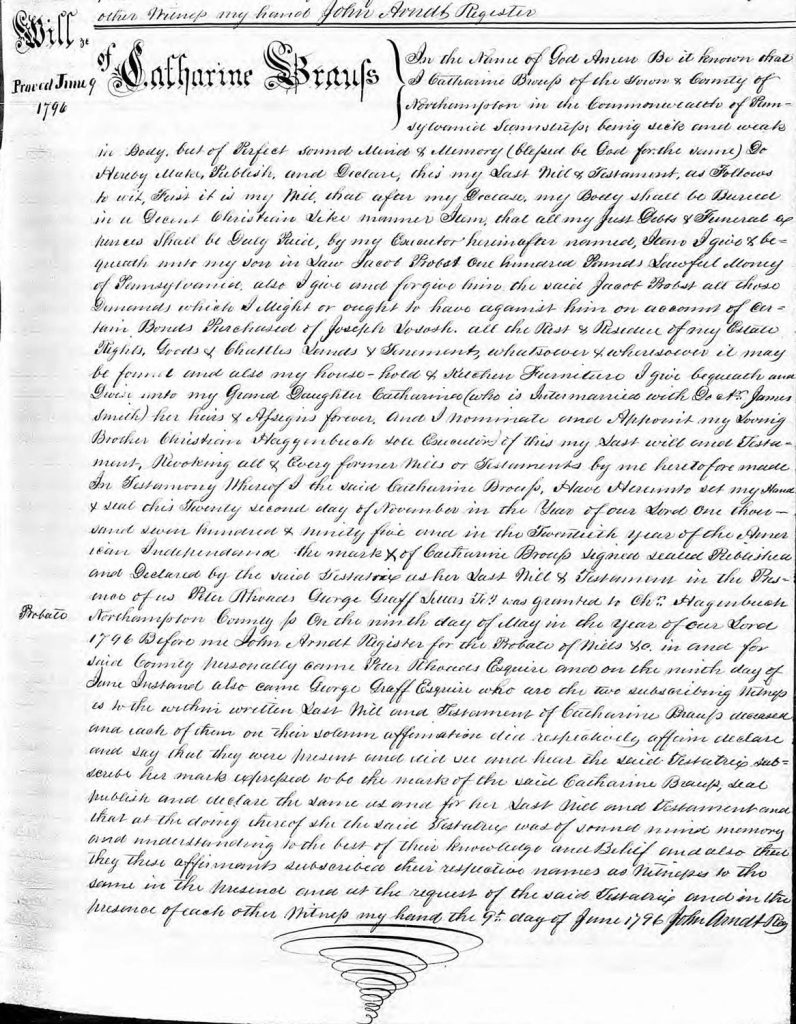 other Witness my hand John Arndt Register
Will &c of Catharine Brauss
Proved June 9
1796
In the Name of God Amen Be it known that
I Catharine Brauss of the Town & County of
Northampton in the Commonwealth of Penn-
sylvania being sick and weak
in Body, but of Perfect sound Mind & Memory (blessed be God for the same) Do
Hereby Make, Publish, and Declare, this my Last Will & Testament, as Follows
to wit, First it is my Will, that after my Decease, my Body shall be Buried
in a Decent Christian Like manner Item, that all my Just Debts & Funeral ex
pences Shall be Duly Paid, by my Executor hereinafter named, Item I give & be-
queath unto my son in Law Jacob Probst One hundred Pounds Lawful Money
of Pennsylvania, also I give and forgive him the said Jacob Probst all those
Demands which I Might or ought to have against him on account of Cer-
tain Bonds Purchased of Joseph all the Rest & Residue of my Estate
Rights, Goods & Chattles Lands & Tenements, whatsoever & wheresoever it may
be found and also my house-hold & Kitchen Furniture I give bequeath and
Devise unto my Grand Daughter Catharina (who is Intermarried with Doctr. James
Smith) her heirs & Assigns forever, And I nominate and Appoint my Loving
Brother Christian Haggenbuch sole Executor of this my Last will and Testa-
ment, Revoking all & Every former Wills or Testaments by me heretofore made
In Testamony Whereof I the said Catharine Brauss, Have Hereunto set my Hand
& seal this Twenty second day of November in the Year of our Lord One thou-
sand seven hundred & ninity five and in the Twentieth year of the Amer
ican Independand the mark X of Catharine Brauss signed sealed Published
and Declared by the said Testatrix as her Last Will & Testament in the Pres-
ence of us Peter Rhoads George Graff Letters Ty was granted to Chn. Hagenbuch
Probate
Northampton County ss On the ninth day of May in the Year of our Lord
1796 Before me John Arndt Register for the Probate of Wills &c. in and for
said County personally came Peter Rhoads Esquire and on the ninth day of
June Instand also came George Graff Esquire who are the two subscribing Witness
is to the within written Last Will and Testament of Catharine Brauss deceased
and each of them on their solemn affirmation did respectively affirm declare
and say that they were present and did see and hear the said Testatrix sub-
scribe her mark expressed to be the mark of the said Catharine Brauss, seal
publish and declare the same as and for her Last Will and Testament and
that at the doing thereof she the said Testatrix was of sound mind memory
and understanding to the best of their knowledge and Belief and also that
they these affirmants subscribed their respective names as Witnesses to the
same in the presence and at the request of the said Testatrix and in the
presence of each other Witness my hand the 9th day of June 1796 John Arndt Reg